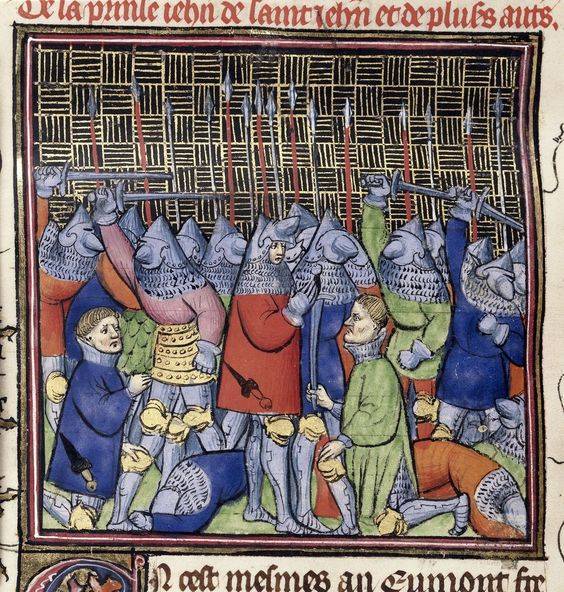 De la prinse iehn de saint Jehn et de plus's auts.
En cest mesmes an Eumont fre